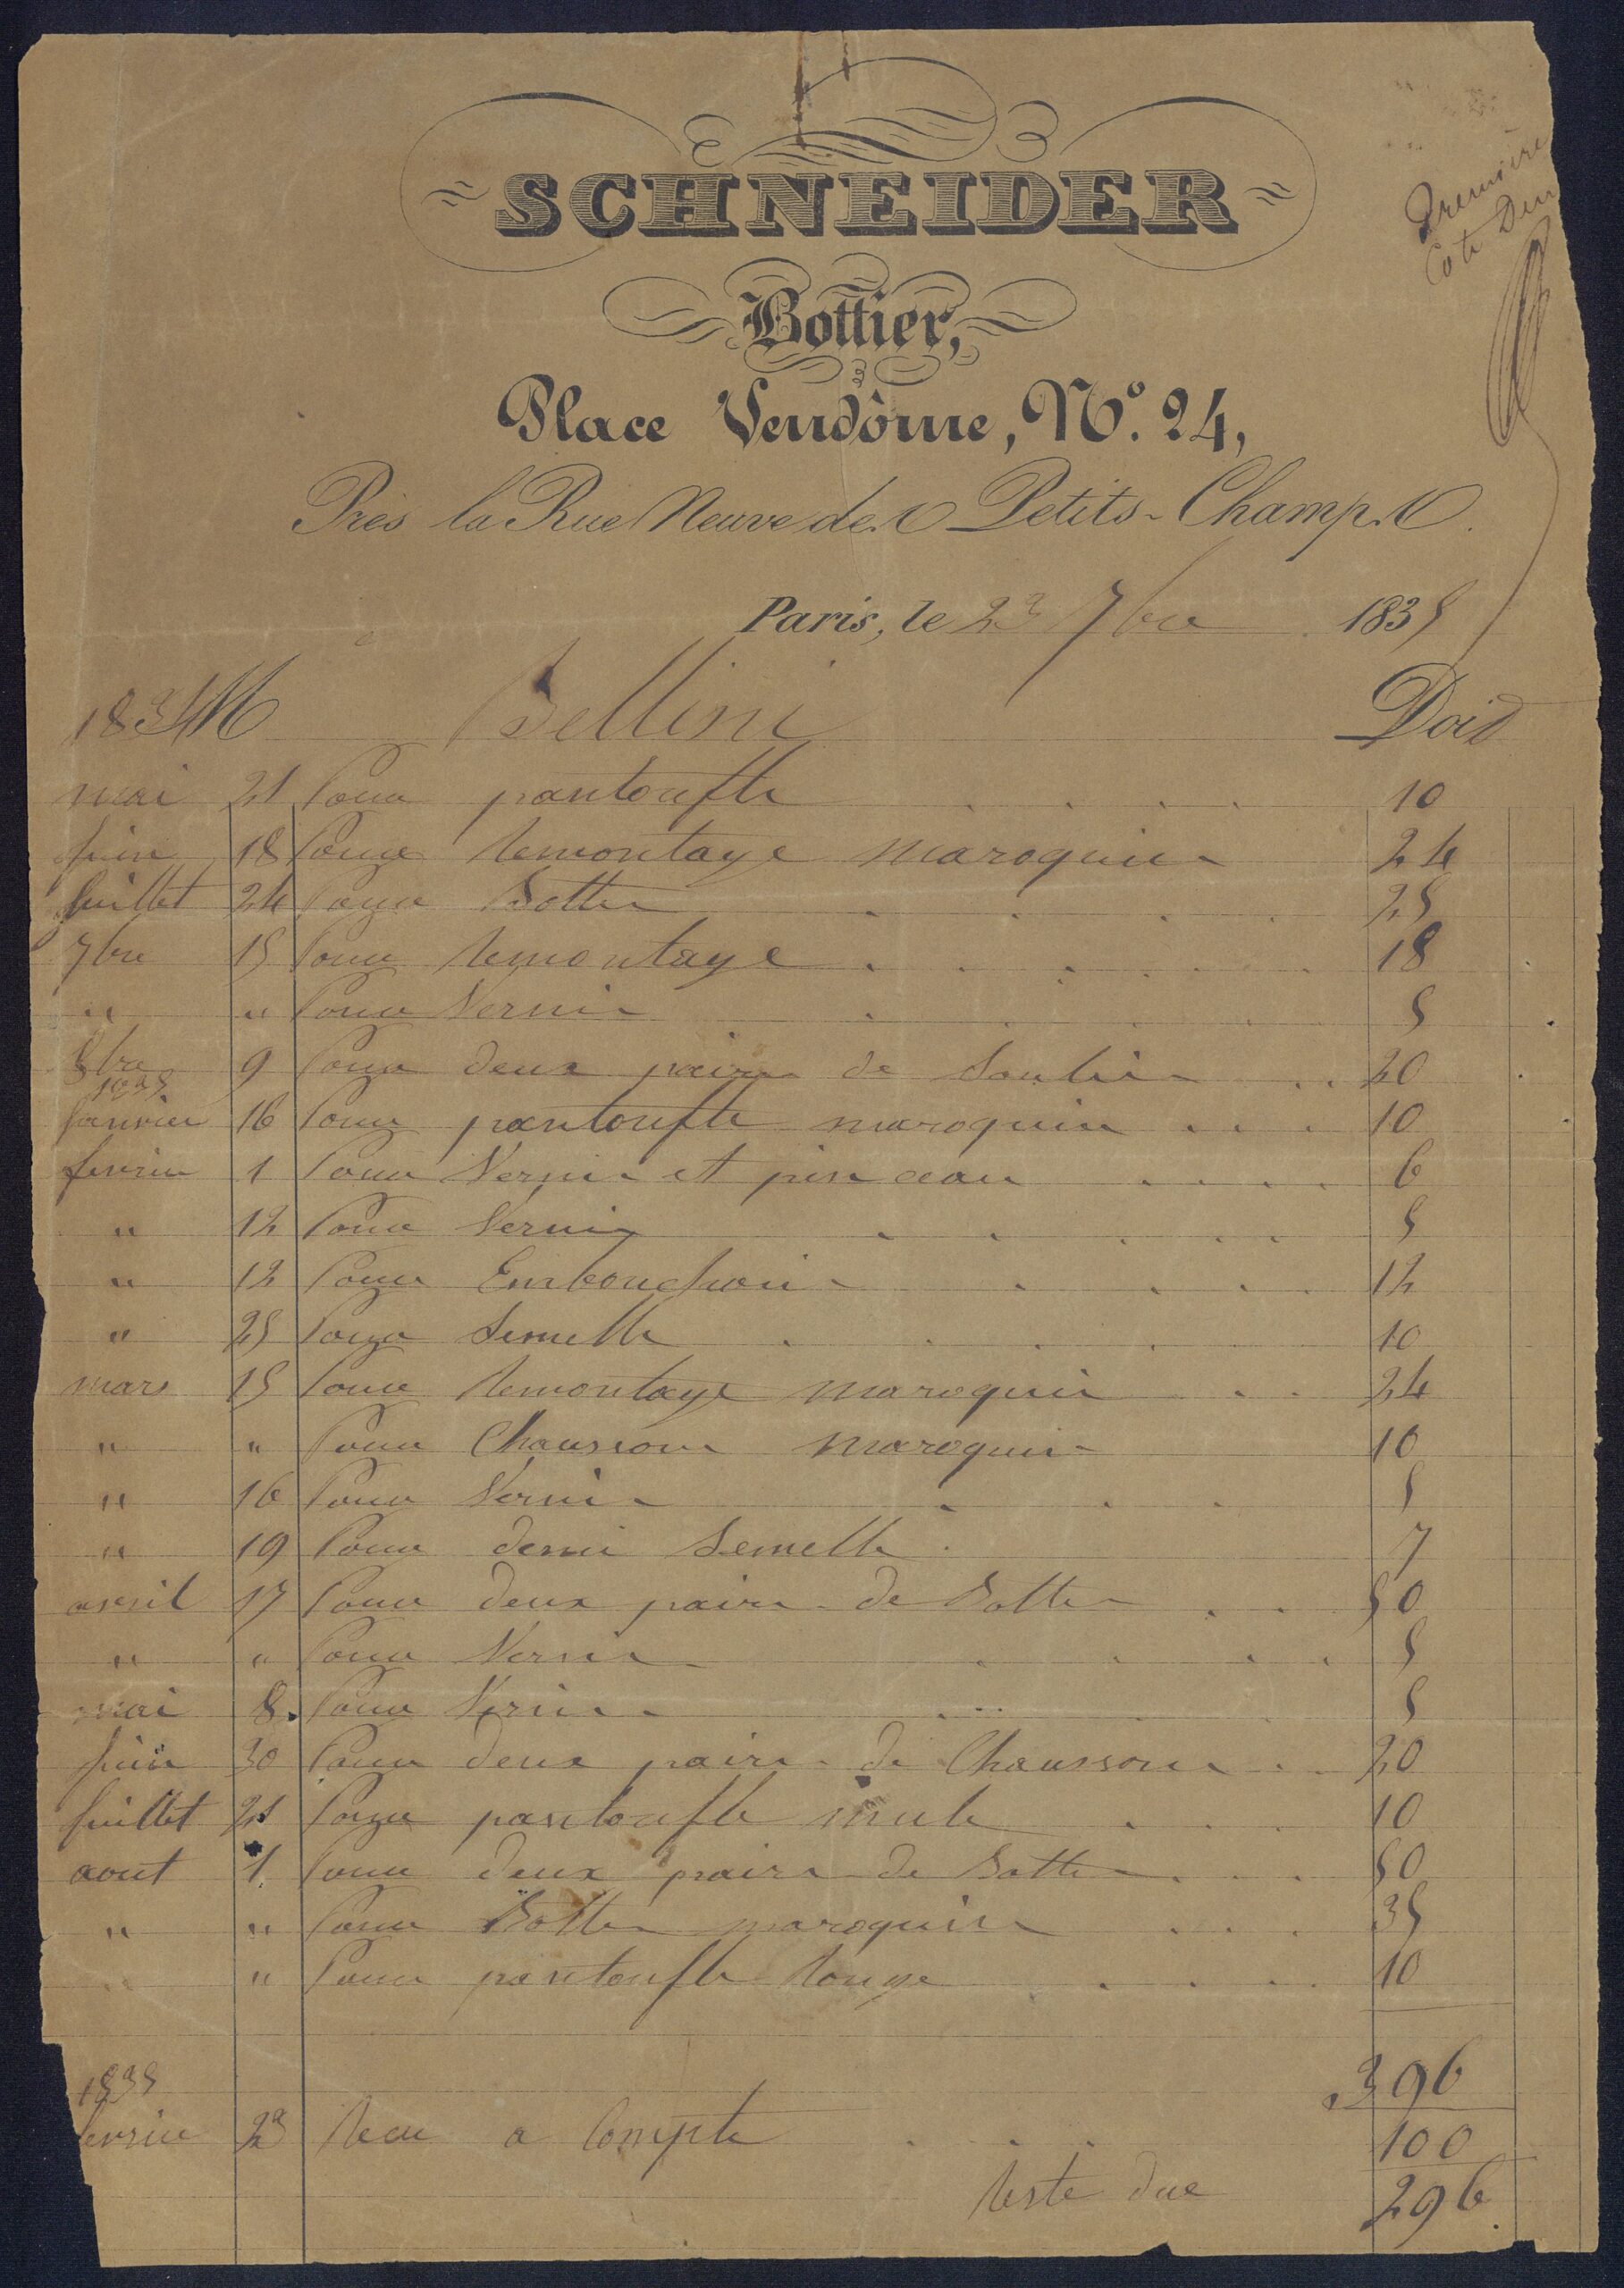 Première
Cote Deu
SCHNEIDER
Bottier,
Place Vendôme, No. 24,
Près la Rue Neuve des Petits-Champs.
Paris, le 23 7bre 1835
1834 M Bellini Doit
mai 21 Pour pantoufle 10
juin 18 Pour remontage maroquin 24
juillet 24 Pour Botte 25
7bre 15 Pour remontage 18
" " Pour Verni 5
8bre 9 Pour deux paire de Soulié 20
1835
janvier 16 Pour pantoufle maroquin 10
fevrier 1 Pour Verni et pinceau 6
" 12 Pour Verni 5
" 12 Pour Embouchoir 12
" 25 Pour Semelle 10
mars 15 Pour remontage maroquin 24
" " Pour Chausson maroquin 10
" 16 Pour Verni 5
" 19 Pour demi Semelle 7
avril 17 Pour deux paire de Botte 50
" " Pour Verni 5
mai 8 Pour Verni 5
juin 30 Pour deux paire de Chausson 20
juillet 21 Pour pantoufle mule 10
aout 1 Pour deux paire de Botte 50
" " Pour Botte maroquin 35
" " Pour pantoufle rouge 10
396
1835
fevrier 23 recu a Compte 100
reste due 296